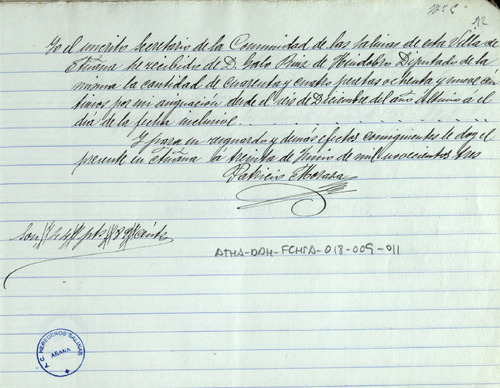 12
Yo el infrito Secretario de la Comunidad de las Salinas de esta Villa de
Añana he recibido de D. Galo Ruiz de Huidobro Diputado de la
misma la cantidad de cuarenta y cuatro pesetas ochenta y nueve cen-
timos por mi asignacion desde el del mes de Diciembre del año último á el
día de la fecha inclusive
Y para su resguardo y demás efectos consiguientes le doy el
presente en Añana á treinta de Junio de mil novecientos tres
Patricio
Son//44//pts//89//cénts
ATHA-DAH-FCHTA-018-009-011
A.C. HEREDEROS SALINAS
AÑANA